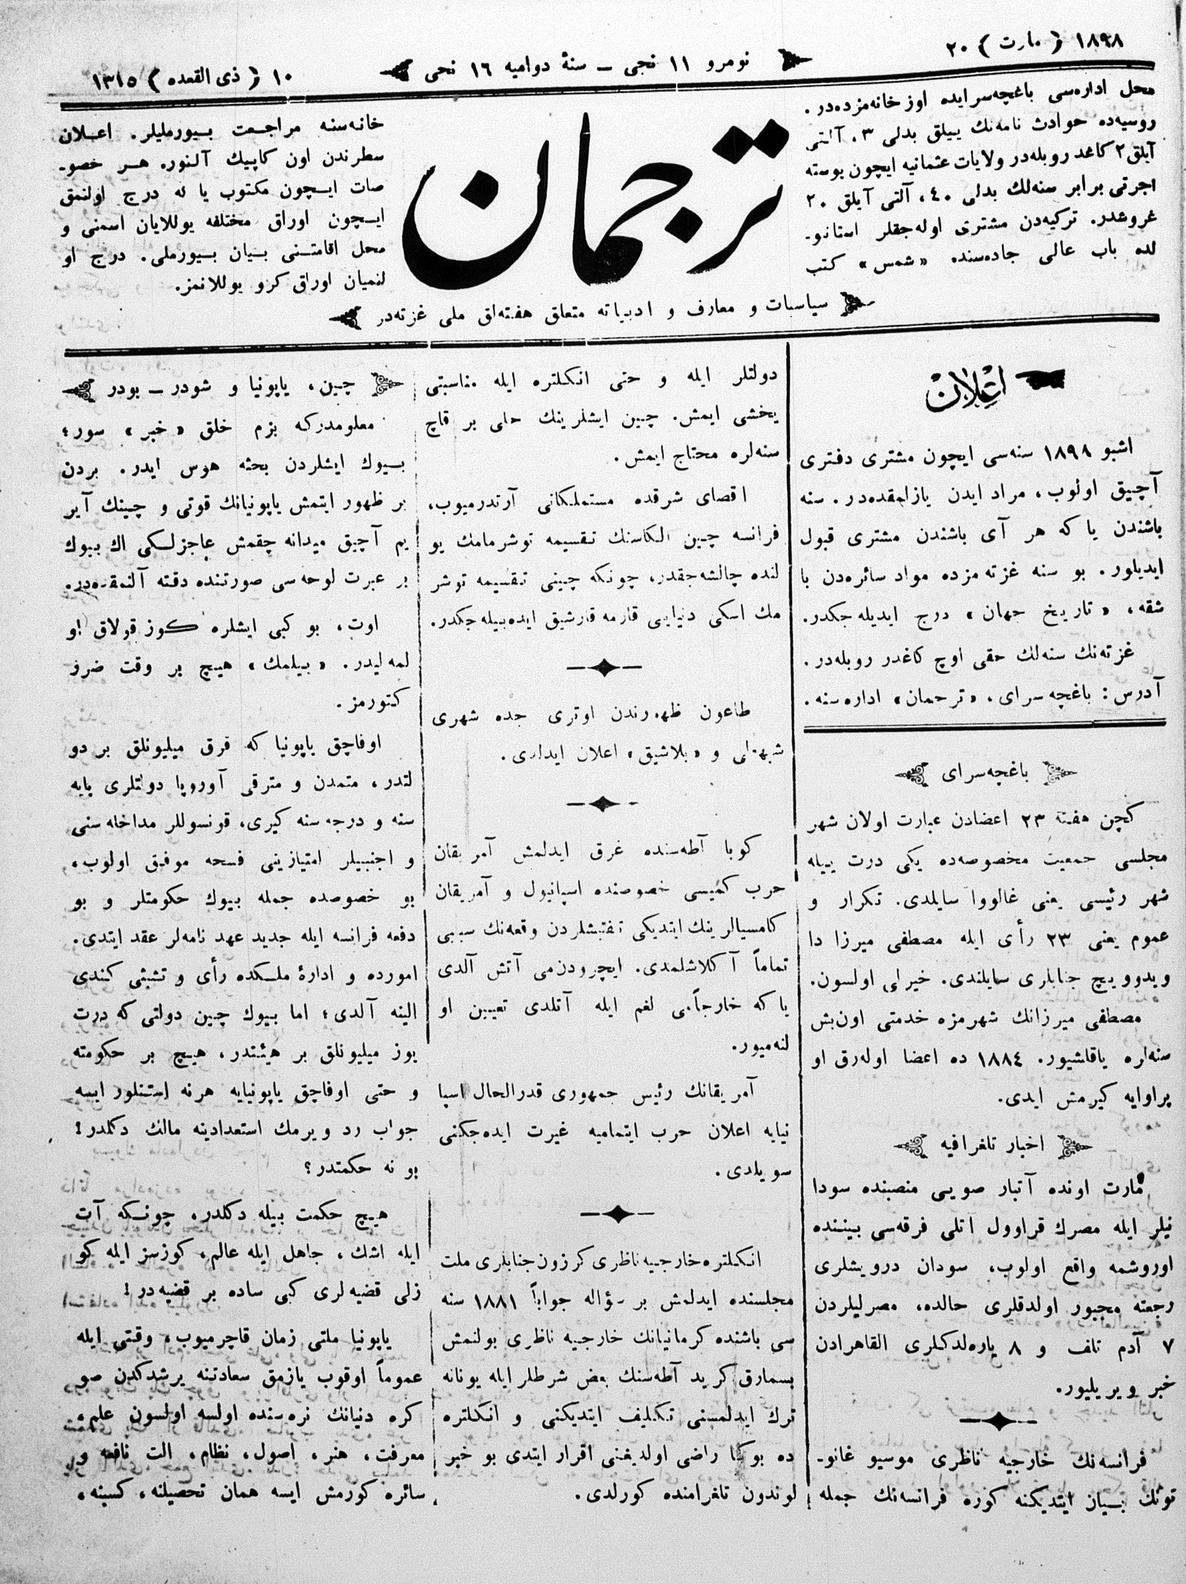 ١٨٩٨ (مارت) ٢٠
نومرو ١١ نجی ــ سنۀ دوامیه ١٦ نحی
١٠ (ذی القعده) ١٣١٥
محل اداره‌سی باغچه‌سرایده اوز خانه‌مزده‌در.
روسیه‌ده حوادث نامه‌نك ییللق بدلی ٣، آلتی
آیلق ٢ كاغد روبله‌در ولایات عثمانیه ایچون پوسته
اجرتی برابر سنه‌لك بدلی ٤٠، آلتی آیلق ٢٠
غروشدر. تركیه‌دن مشتری اوله‌جقلر استانبو-
لده باب عالی جاده‌سنده «شمس» كتب
ترجمان
خانه‌سنه مراجعت بیورملیلر. اعلان
سطرندن اون كاپیك آلنور. هر خصو-
صات ایچون مكتوب یا له درج اولنمق
ایچون اوراق مختلفه یوللایان اسمنی و
محل اقامتنی بیان بیورملی. درج او
لنمیان اوراق كرو یوللانمز.
سیاسیات و معارف و ادبیاته متعلق هفته‌لق ملی غزته‌در
اعلان
اشبو ١٨٩٨ سنه‌سی ایچون مشتری دفتری
آچیق اولوب، مراد ایدن یازلمقده‌در. سنه
باشندن یا كه هر آی باشندن مشتری قبول
ایدیلور. بو سنه غزته مزده مواد سائره‌دن با
شقه، «تاریخ جهان» درج ایدیله جكدر.
غزته‌نك سنه‌لك حقی اوچ كاغدر روبله‌در.
آدرس: باغچه سرای، «ترجمان» اداره سنه.
باغچه‌سرای
كچن هفته ٢٣ اعضادن عبارت اولان شهر
مجلسی جمعیت مخصوصه‌ده یكی درت ییله
شهر رئیسی یعنی غالووا سایلدی. تكرار و
عموم یعنی ٢٣ رأی ایله مصطفی میرزا دا
ویدوویچ جنابلری سایلندی. خیرلی اولسون.
مصطفی میرزانك شهرمزه خدمتی اون‌بش
سنه‌لره یاقلشیور. ١٨٨٤ ده اعضا اوله‌رق او
پراوایه كیرمش ایدی.
اخبار تلغرافیه
مارت اونده آتبار صویی منصبنده سودا
نیلر ایله مصرك قراوول آتلی فرقه‌سی بیننده
اوروشمه واقع اولوب، سودان درویشلری
رجعته مجبور اولدقلری حالده، مصرلیلردن
٧ آدم تلف و ٨ یاره‌لدكلری القاهرادن
خبر ویریلیور.
فرانسه‌نك خارجیه ناظری موسیو غانو-
تونك بیان ایتدیكنه كوره فرانسه‌نك جمله
دولتلر ایله و حتی انكلتره ایله مناسبتی
یخشی ایمش. چین ایشلرینك حلی بر قاچ
سنه‌لره محتاج ایمش.
اقصای شرقده مستملكانی آرتدرمیوب،
فرانسه چین الكاسنك تقسیمه توشرمامك یو
لنده چالشه‌جقدر، چونكه چینی تقسیمه توشر
مك اسكی دنیایی قارمه قارشیق ایده‌بیله جكدر.
طاعون ظهورندن اوتری جده شهری
شبهه‌لی و «بلاشیق» اعلان ایدلدی.
كوبا آطه‌سنده غرق ایدلمش آمریقان
حرب كمیسی خصوصنده اسپانیول و آمریقان
كامسیالرینك ایتدیكی تفتیشلردن وقعه‌نك سببی
تماماً آكلاشلمدی. ایچرودن‌می آتش آلدی
یا كه خارجاً می لغم ایله آتلدی تعیین او
لنه‌میور.
آمریقانك رئیس جمهوری قدرالحال اسپا
نیایه اعلان حرب ایتمامیه غیرت ایده‌جكنی
سویلدی.
انكلتره خارجیه ناظری كرزون جنابلری ملت
مجلسنده ایدلمش بر سؤاله جواباً ١٨٨١ سنه
سی باشنده كرمانیانك خارجیه ناظری بولنمش
بسمارق كرید آطه‌سنك بعض شرطلر ایله یونانه
ترك ایدلمسنی تكلیف ایتدیكنی و انكلتره
ده بوكا راضی اولدیغنی اقرار ایتدی بو خبر
لوندون تلغرامنده كورلدی.
چین، یاپونیا و شودر ــ بودر
معلومدركه بزم خلق «خبر» سور؛
بیوك ایشلردن بحثه هوس ایدر. بردن
بر ظهور ایتمش یاپونیانك قوتی و چینك آیر
یم آچیق میدانه چقمش عاجزلكی اك بیوك
بر عبرت لوحه‌سی صورتنده دقته آلنمقده‌در.
اوت، بو كبی ایشلره كوز قولاق او
لمه‌لیدر. «بیلمك» هیچ بر وقت ضرر
كتورمز.
اوفاچق یاپونیا كه قرق میلیونلق بر دو
لتدر، متمدن و مترقی آوروپا دولتلری پایه
سنه و درجه سنه كیری، قونسوللر مداخله سنی
و اجنبیلر امتیازینی فسحه موفق اولوب،
بو خصوصده جمله بیوك حكومتلر و بو
دفعه فرانسه ایله جدید عهد نامه‌لر عقد ایتدی.
امورده و ادارۀ ملكده رأی و تشبثی كندی
الینه آلدی؛ اما بیوك چین دولتی كه درت
یوز میلیونلق بر هیئتدر، هیچ بر حكومته
و حتی اوفاچق یاپونیایه هرنه استنلور ایسه
جواب رد ویرمك استعدادینه مالك دكلدر!
بو نه حكمتدر؟
هیچ حكمت بیله دكلدر، چونكه آت
ایله اشك، جاهل ایله عالم، كوزسز ایله كو
زلی قضیه‌لری كبی ساده بر قضیه‌در!
یاپونیا ملتی زمان قاچرمیوب، وقتی ایله
عموماً اوقوب یازمق سعادتنه یرشدكدن صو
كره دنیانك نره‌سنده اولسه اولسون علم،
معرفت، هنر، اصول، نظام، الت نافعه و
سائره كورمش ایسه همان تحصیلنه، كسبنه،